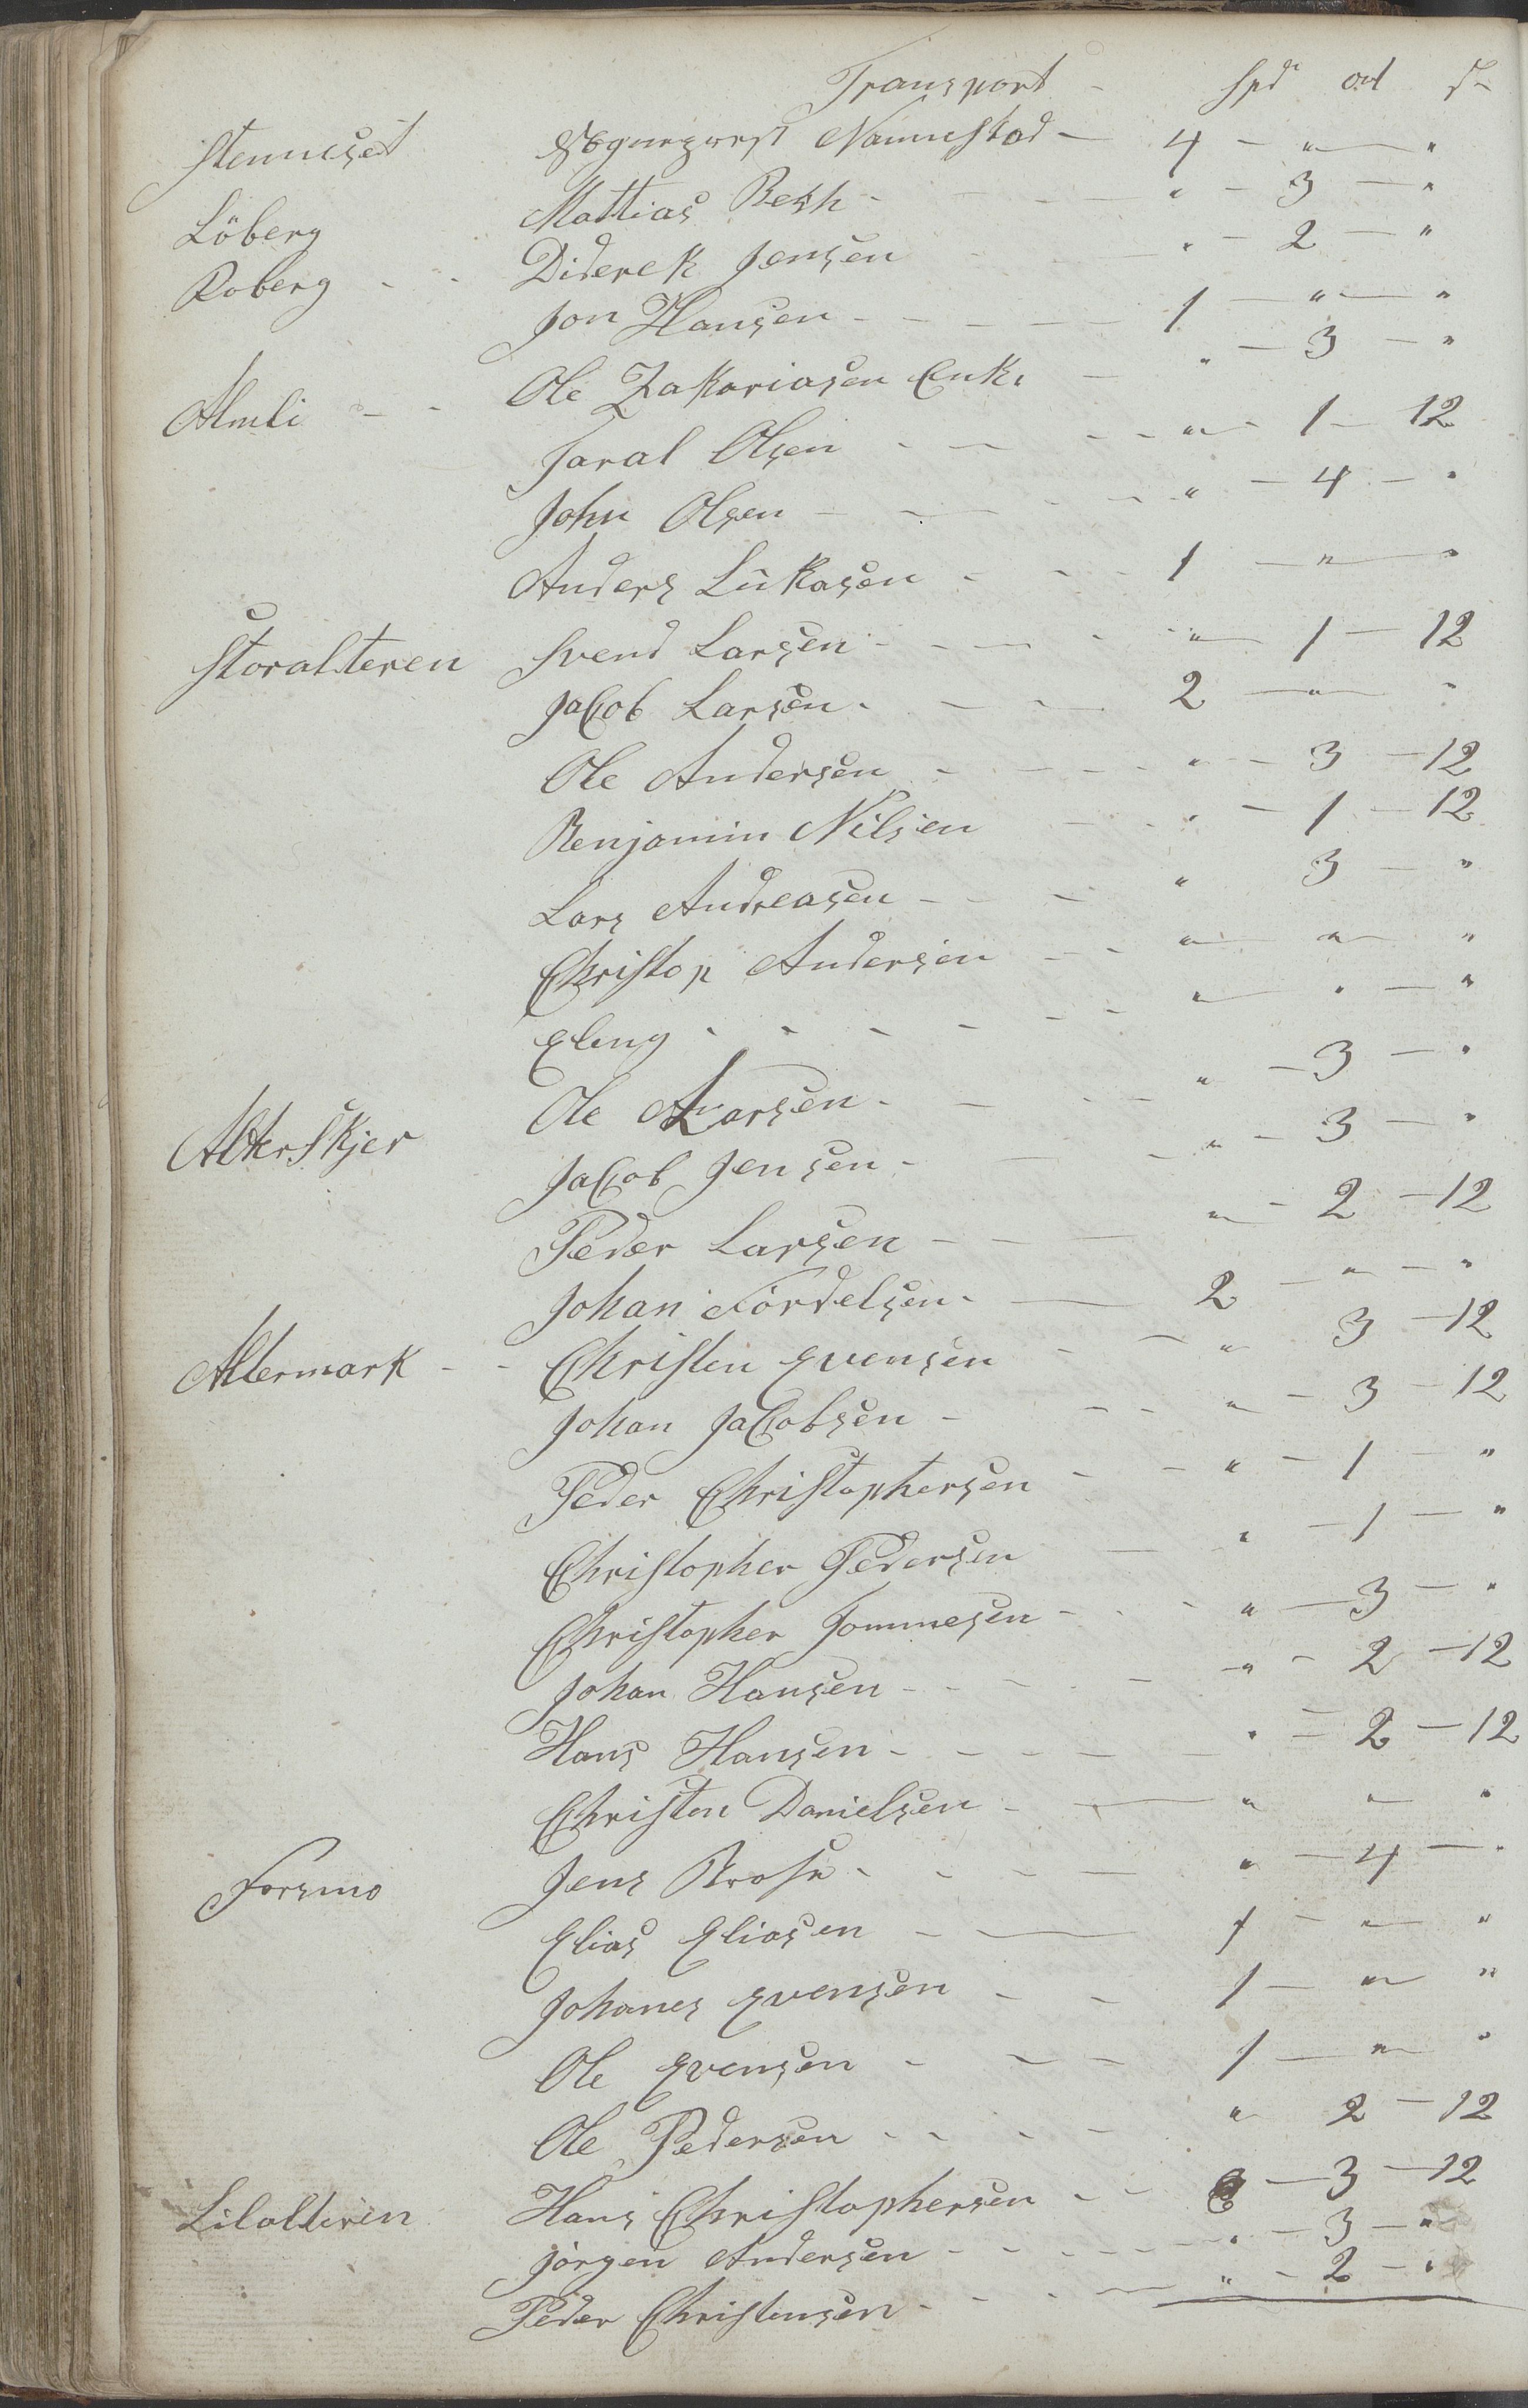 Transport - Spd ort s-
Stenneset Nannestad - 4 - " - "
Löberg Mattias Besk - - " - 3 - "
Roberg - - Diderek Jensen - " - 2 - "
Jon Hansen - - - 1 - " - "
Almli - - Ole Zakariasen Enke - " - 3 - "
Taral Olsen - - - - " - 1 - 12
John Olsen - - - - " - 4 - "
Anders Lukasen - - - 1 - " - "
Storalteren Svend Larsen - - - - " - 1 - 12
Jacob Larsen - - - 2 - " - "
Ole Andersen - - - - " - 3 - 12
Benjamin Nilsen - - " - 1 - 12
Lars Andreasen - - - " 3 - "
Christop Andersen - - " - " - "
Eling - - - - - - " - " - "
Ole Larsen - - - - " - 3 - "
Alterskjer Jacob Jensen - - - " - 3 - "
Peder Larsen - - - " - 2 - 12
Johan Tördelsen - - 2 - " - "
Altermark - - Christen Evensen - - " 3 - 12
Johan Jacobsen - - - " - 3 - 12
Peder Christophersen - - " - 1 - "
Christopher Pedersen - " - 1 - "
Christopher Tommesen - - - " - 3 - "
Johan Hansen - - - - " - 2 - 12
Hans Hansen - - - - - " - 2 - 12
Christen Danielsen - - " " "
Forsmo Jens - - - - " - 4 - "
Elias Eliasen - - 1 - " - "
Johanes Evensen - - 1 - " - "
Ole Evensen - - - 1 - " - "
Ole Pedersen - - - - " 2 - 12
Lilalteren Hans Christophersen - - - 3 - 12
Jörgen Andersen - - - - - " - 3 - "
Peder Christensen - - - - " - 2 - "